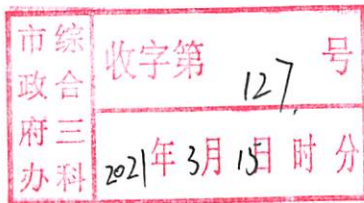 市政府办
综合三科
收字第127号
2021年3月15日 时 分